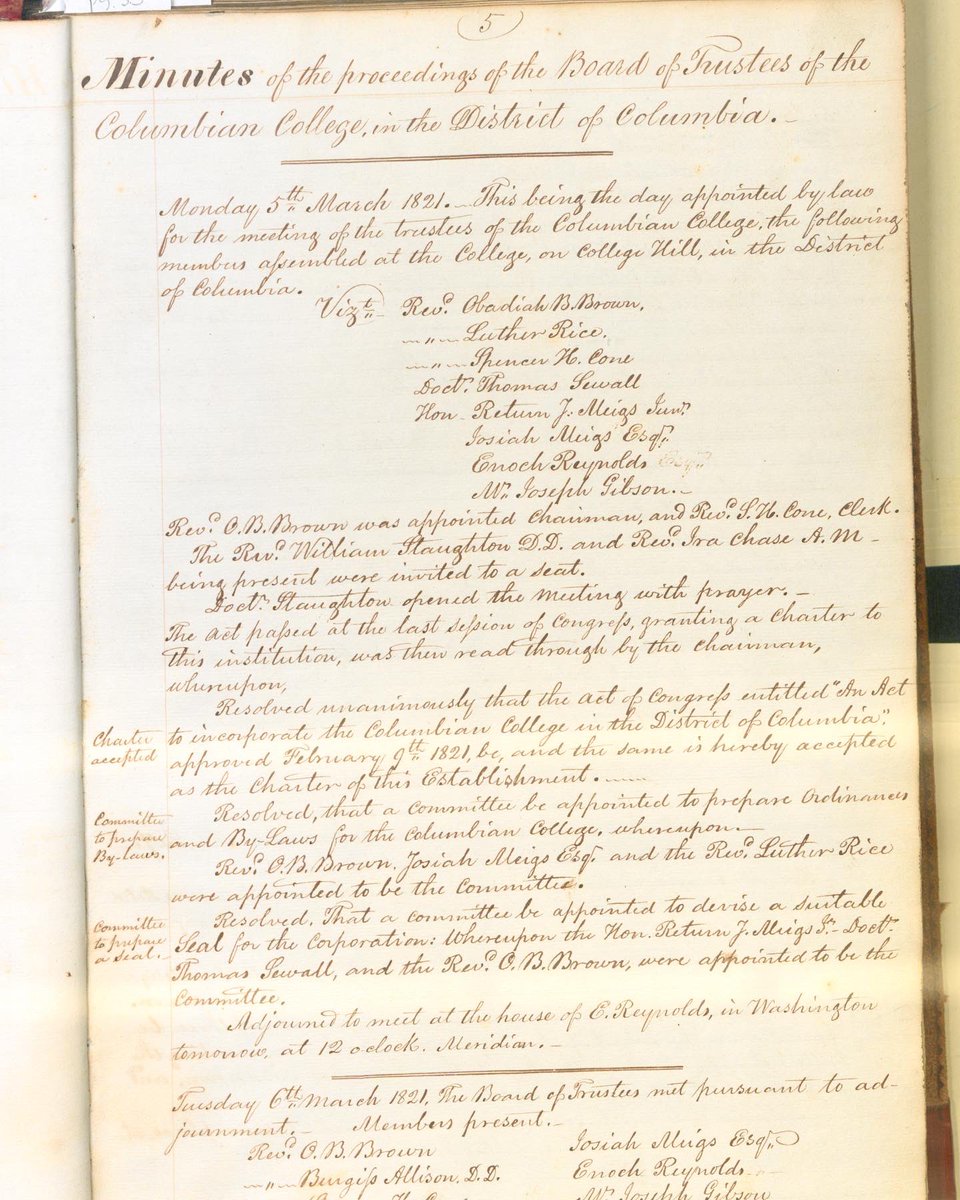 5
Minutes of the proceedings of the Board of Trustees of the
Columbian College, in the District of Columbia.
Monday 5th March 1821. This being the day appointed by law
for the meeting of the trustees of the Columbian College, the following
members assembled at the College, on College Hill, in the District
of Columbia.
Vizt. Revd. Obadiah B. Brown,
" Luther Rice,
" Spencer H. Cone
Doctr. Thomas Sewall
Hon Return J. Meigs Junr.
Josiah Meigs Esqr.
Enoch Reynolds Esqr.
Mr. Joseph Gibson.
Revd. O. B. Brown was appointed Chairman, and Revd. S. H. Cone, Clerk.
The Revd. William Staughton D.D. and Revd. Ira Chase A. M
being present were invited to a seat.
Doctr. Staughton opened the meeting with prayer.
The act passed at the last session of Congress, granting a Charter to
this institution, was then read through by the Chairman,
whereupon,
Resolved unanimously that the act of Congress entitled "An Act
Charter accepted
to incorporate the Columbian College in the District of Columbia".
approved February 9th 1821, be, and the same is hereby accepted
as the Charter of this Establishment.
Committee to prepare By-laws.
Resolved, that a committee be appointed to prepare Ordinances
and By-Laws for the Columbian College. whereupon.
Revd. O. B. Brown. Josiah Meigs Esqr. and the Revd. Luther Rice
were appointed to be the Committee.
Committee to prepare a Seal.
Resolved. That a committee be appointed to devise a suitable
Seal for the Corporation: Whereupon the Hon. Return J. Meigs Jr. Doctr.
Thomas Sewall, and the Revd. O. B. Brown, were appointed to be the
Committee.
Adjourned to meet at the house of E. Reynolds, in Washington
tomorrow, at 12 oclock. Meridian.
Tuesday 6th March 1821. The Board of Trustees met pursuant to ad-
journment. Members present.
Revd. O. B. Brown Josiah Meigs Esqr.
" Burgiss Allison, D.D. Enoch Reynolds
H. Cone Mr. Joseph Gibson